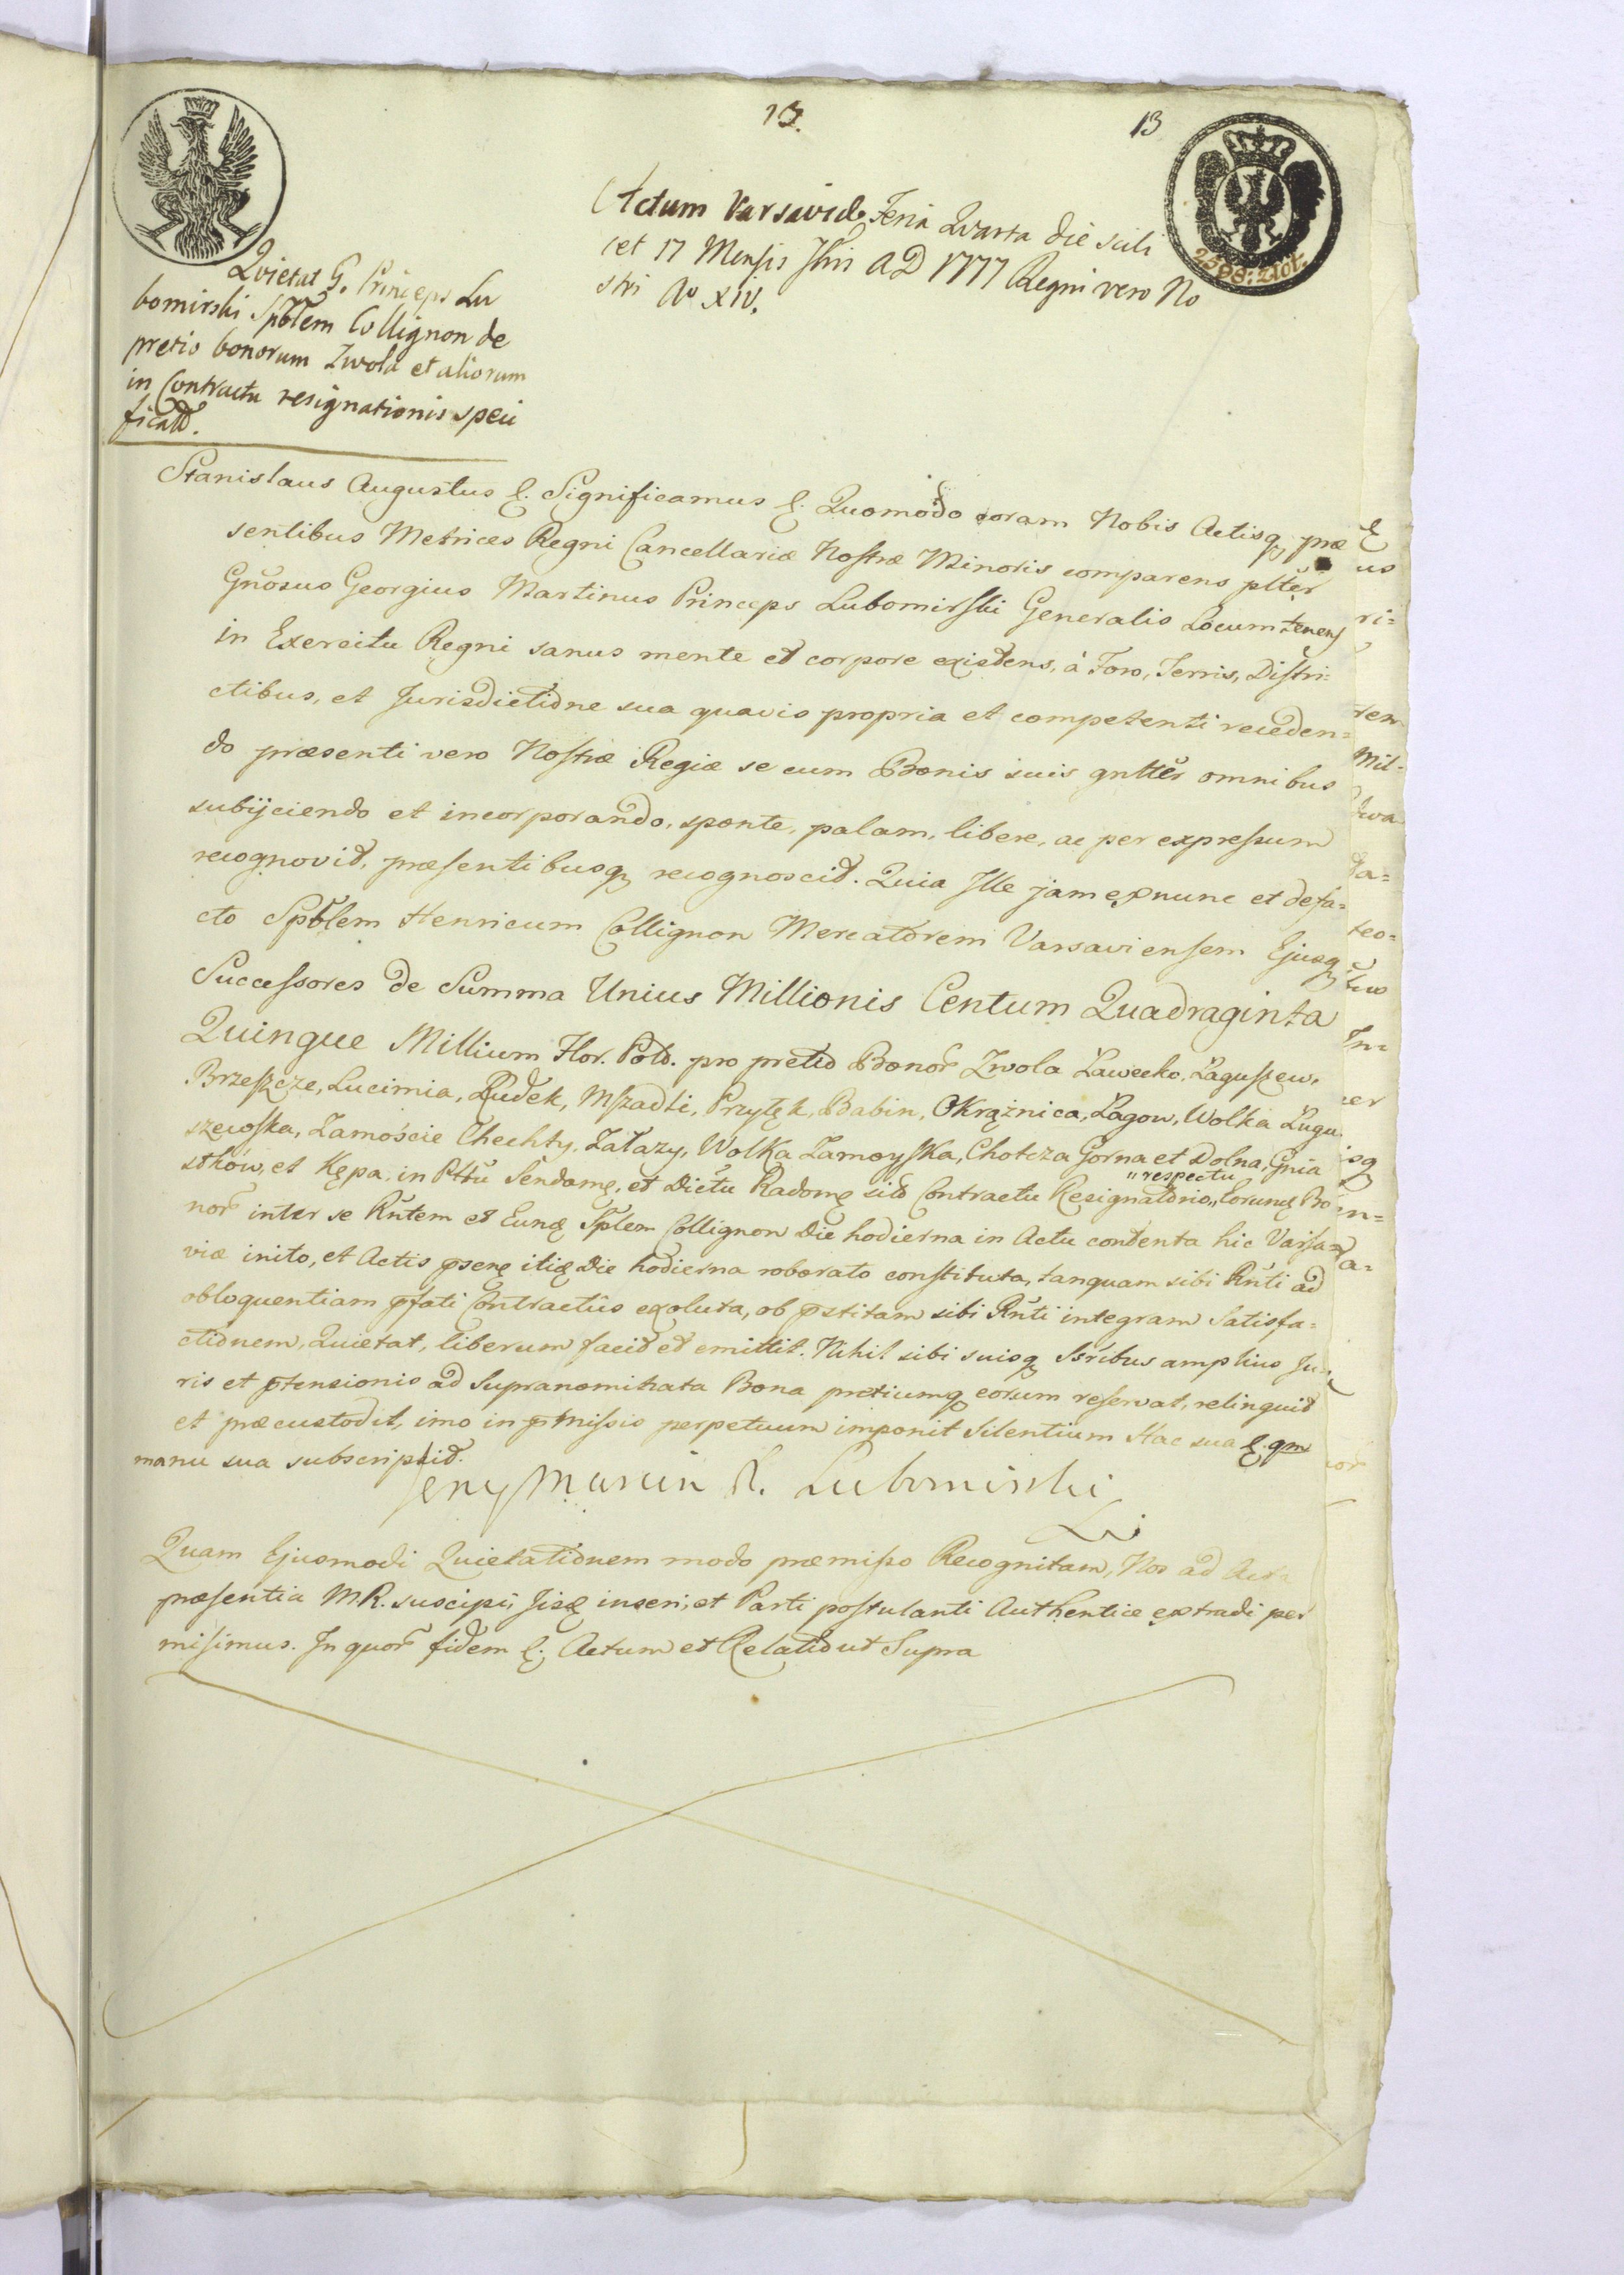 13.
13
25 gr: złot.
Actum Varsaviæ Feria Qvarta die scili
cet 17 Mensis Xbris AD 1777 Regni vero No
stri Ao XIV.
Qvietat G. Princeps Lu
bomirski Spblem Collignon de
pretio bonorum Zwola et aliorum
in Contractu resignationis speci
ficatt.
Stanislaus Augustus &. Significamus &. Quomodo coram Nobis Actisq præ
sentibus Metrices Regni Cancellariæ Nostræ Minoris comparens plter
Gnosus Georgius Martinus Princeps Lubomirski Generalis Locumtenens
in Exercitu Regni sanus mente et corpore existens, à Foro, Terris, Distri=
ctibus, et Jurisdictione sua quavis propria et competenti receden=
do præsenti vero Nostræ Regiæ se cum Bonis suis gntter omnibus
subijciendo et incorporando, sponte, palam, libere, ac per expressum
recognovit, præsentibusq recognoscit. Quia Ille jam ex nunc et defa=
cto Spblem Henricum Collignon Mercatorem Varsaviensem Ejusq
Successores de Summa Unius Millionis Centum Quadraginta
Quinque Millium Flor. Pold. pro pretio Bonor Zwola Ławecko, Łaguszew,
Brzeszcze, Lucimia, Rudek, Mszadli, Przyłęk, Babin, Okrążnica, Łagow, Wolka Łagu
szewska, Zamoście Chechły, Załazy, Wolka Zamoyska, Chotcza Gorna et Dolna, Gnia
zdków, et Kępa, in Pttu Sendomę. et Dictu Radomę sitt Contractu Resignatorio "respectu" Eorundę Bo
nor inter se Rntem et Eundę Spblem Collignon Die hodierna in Actu contenta hic Varsa=
viæ inito, et Actis psenę itię Die hodierna roborato constituta, tanquam sibi Rnti ad
obloquentiam pfati Contractûs exoluta, ob pstitam sibi Rnti integram Satisfa=
ctionem, Quietat, liberum facit et emittit. Nihil sibi suisq Ssribus amplius Ju=
ris et ptensionis ad Supranominata Bona pretiumq eorum reservat, relinquit
et præcustodit, imo in pmissis perpetuum imponit Silentium Hac sua &. qm
manu sua subscripsit.
Jerzy Marcin X. Lubomirski
Quam Ejusmodi Quietationem modo præmisso Recognitam, Nos ad Acta
præsentia M.R. suscipi, Jisq inseri, et Parti postulanti Authentice extradi per
misimus. In quor fidem &. Actum et Relatio ut Supra